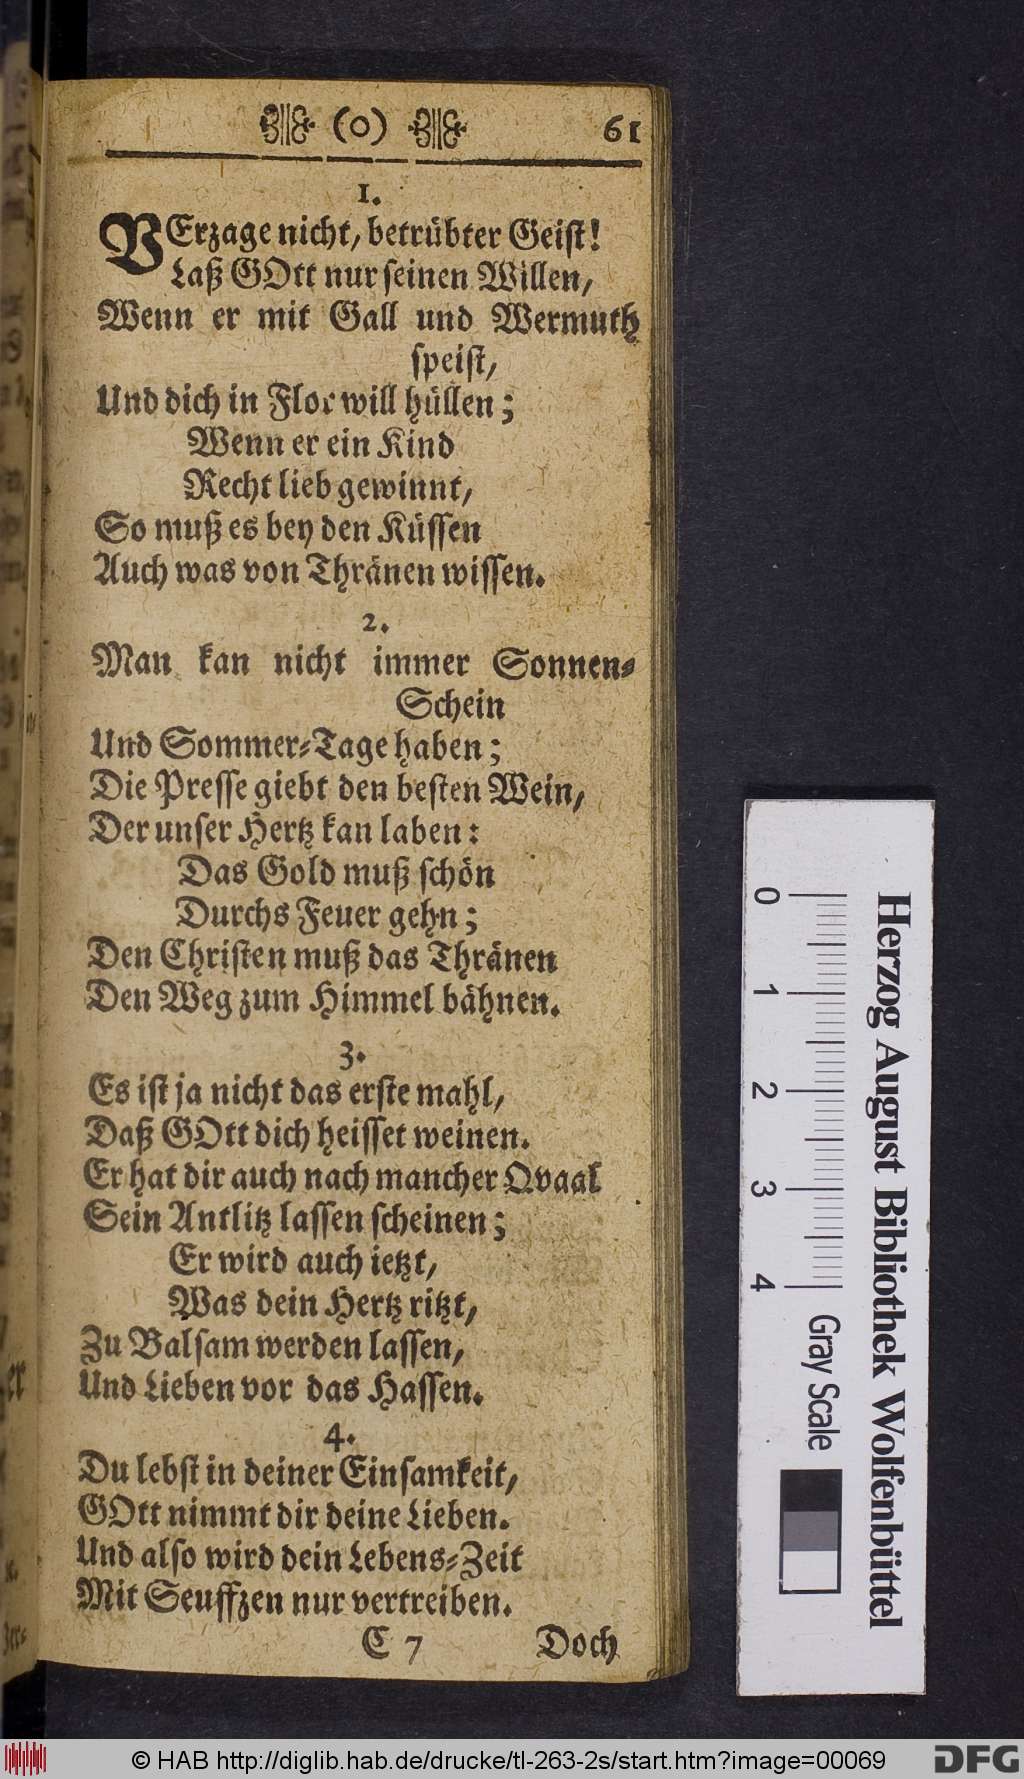 (o) 61
1.
VErzage nicht, betrübter Geist!
Laß GOtt nur seinen Willen,
Wenn er mit Gall und Wermuth
speist,
Und dich in Flor will hüllen;
Wenn er ein Kind
Recht lieb gewinnt,
So muß es bey den Küssen
Auch was von Thränen wissen.
2.
Man kan nicht immer Sonnen-
Schein
Und Sommer-Tage haben;
Die Presse giebt den besten Wein,
Der unser Hertz kan laben:
Das Gold muß schön
Durchs Feuer gehn;
Den Christen muß das Thränen
Den Weg zum Himmel bähnen.
3.
Es ist ja nicht das erste mahl,
Daß GOtt dich heisset weinen.
Er hat dir auch nach mancher Qvaal
Sein Antlitz lassen scheinen;
Er wird auch ietzt,
Was dein Hertz ritzt,
Zu Balsam werden lassen,
Und Lieben vor das Hassen.
4.
Du lebst in deiner Einsamkeit,
GOtt nimmt dir deine Lieben.
Und also wird dein Lebens-Zeit
Mit Seuffzen nur vertreiben.
C 7 Doch
Herzog August Bibliothek Wolfenbüttel
0 1 2 3 4 Gray Scale
© HAB http://diglib.hab.de/drucke/tl-263-2s/start.htm?image=00069
DFG